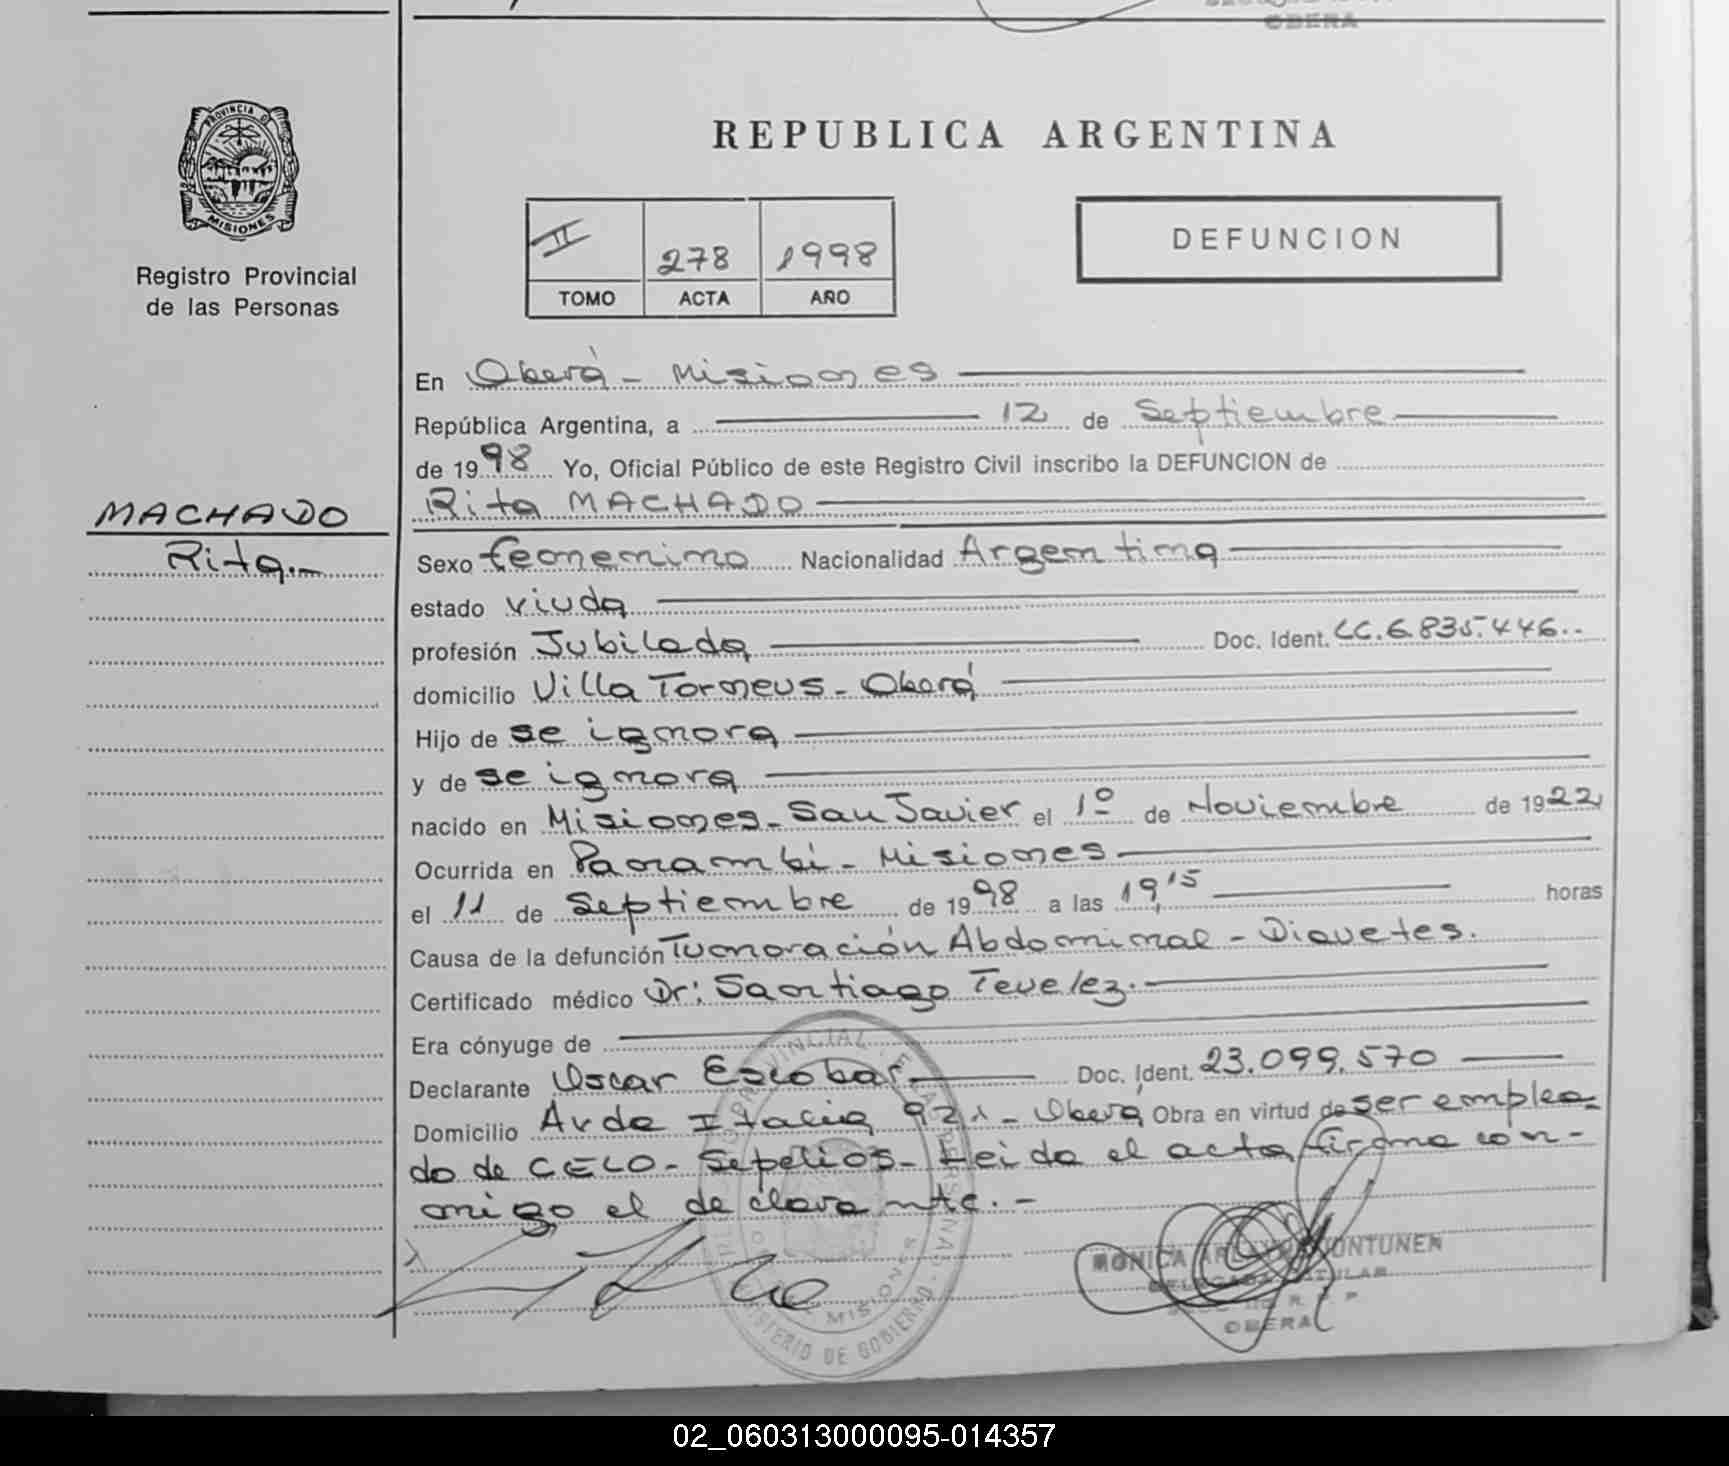 OBERA
PROVINCIA D
MISIONES
Registro Provincial
de las Personas
REPUBLICA ARGENTINA
II 278 1998
TOMO ACTA AÑO
DEFUNCION
En Oberá - Misiones
República Argentina, a 12 de Septiembre
de 1998 Yo, Oficial Público de este Registro Civil inscribo la DEFUNCION de
Rita MACHADO
MACHADO
Rita.-
Sexo femenino Nacionalidad Argentina
estado viuda
profesión Jubilada Doc. Ident. LC.6.835.446.-
domicilio Villa Torneus - Oberá
Hijo de se ignora
y de se ignora
nacido en Misiones - San Javier el 1º de Noviembre de 1922
Ocurrida en Panambí - Misiones
el 11 de Septiembre de 1998 a las 19,15 horas
Causa de la defunción Tumoración Abdominal - Diavetes.
Certificado médico Dr: Santiago Tevelez.
Era cónyuge de
Declarante Oscar Escobar Doc. Ident. 23.099.570
Domicilio Avda Italia Oberá Obra en virtud de ser emplea-
do de CELO - Sepelios - Leida el acta firma con-
migo el declarante.-
MONICA
TITULAR
OBERA
PROVINCIAL DE LAS PERSONAS
MISIONES
MINISTERIO DE GOBIERNO
02_060313000095-014357